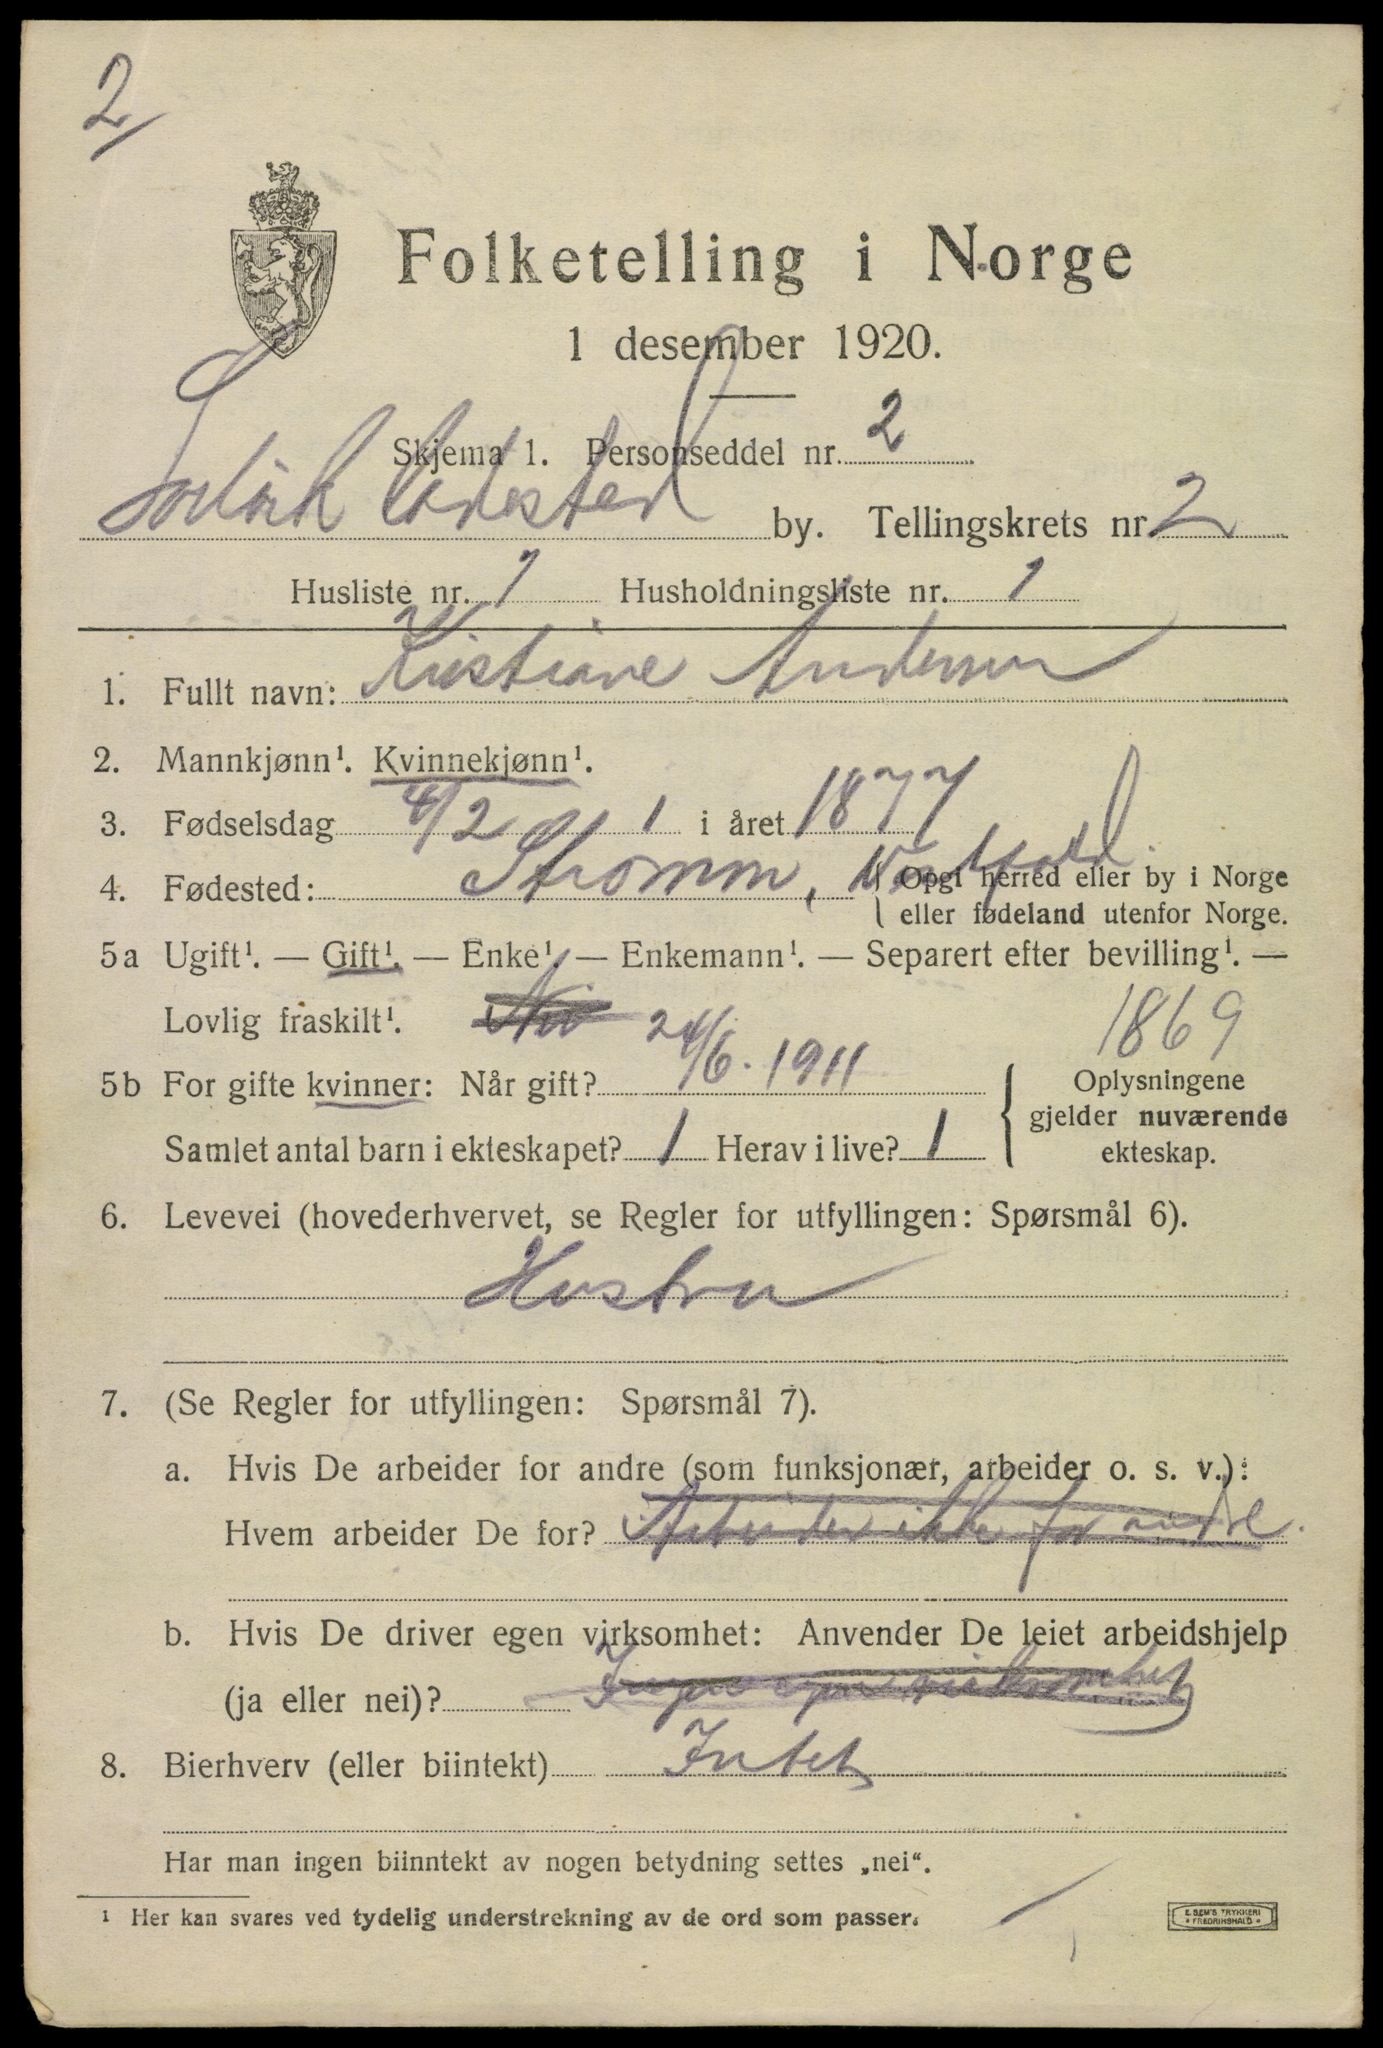 2
Folketelling i Norge
1 desember 1920.
Skjema 1. Personseddel nr. 2
Sørvik Ladested by. Tellingskrets nr 2
Husliste nr. 1 Husholdningsliste nr. 1
1. Fullt navn: Kristiane Andersen
2. Mannkjønn¹. Kvinnekjønn¹.
3. Fødselsdag 4/2 1 i året 1877
4. Fødested: Strömm, Vestfold. Opgi herred eller by i Norge
eller fødeland utenfor Norge.
5a Ugift¹. — Gift¹. — Enke¹. — Enkemann¹. — Separert efter bevilling¹. —
Lovlig fraskilt¹. 1869
5b For gifte kvinner: Når gift? 24/6. 1911
Samlet antal barn i ekteskapet? 1 Herav i live? 1
Oplysningene
gjelder nuværende
ekteskap.
6. Levevei (hovederhvervet, se Regler for utfyllingen: Spørsmål 6).
Hustru
7. (Se Regler for utfyllingen: Spørsmål 7).
a. Hvis De arbeider for andre (som funksjonær, arbeider o. s. v.):
Hvem arbeider De for? Arbeider ikke for andre.
b. Hvis De driver egen virksomhet: Anvender De leiet arbeidshjelp
(ja eller nei)? Ingen egen virksomhet
8. Bierhverv (eller biintekt) Intet
Har man ingen biinntekt av nogen betydning settes „nei“.
¹ Her kan svares ved tydelig understrekning av de ord som passer.
E. SEM'S TRYKKERI
FREDRIKSHALD